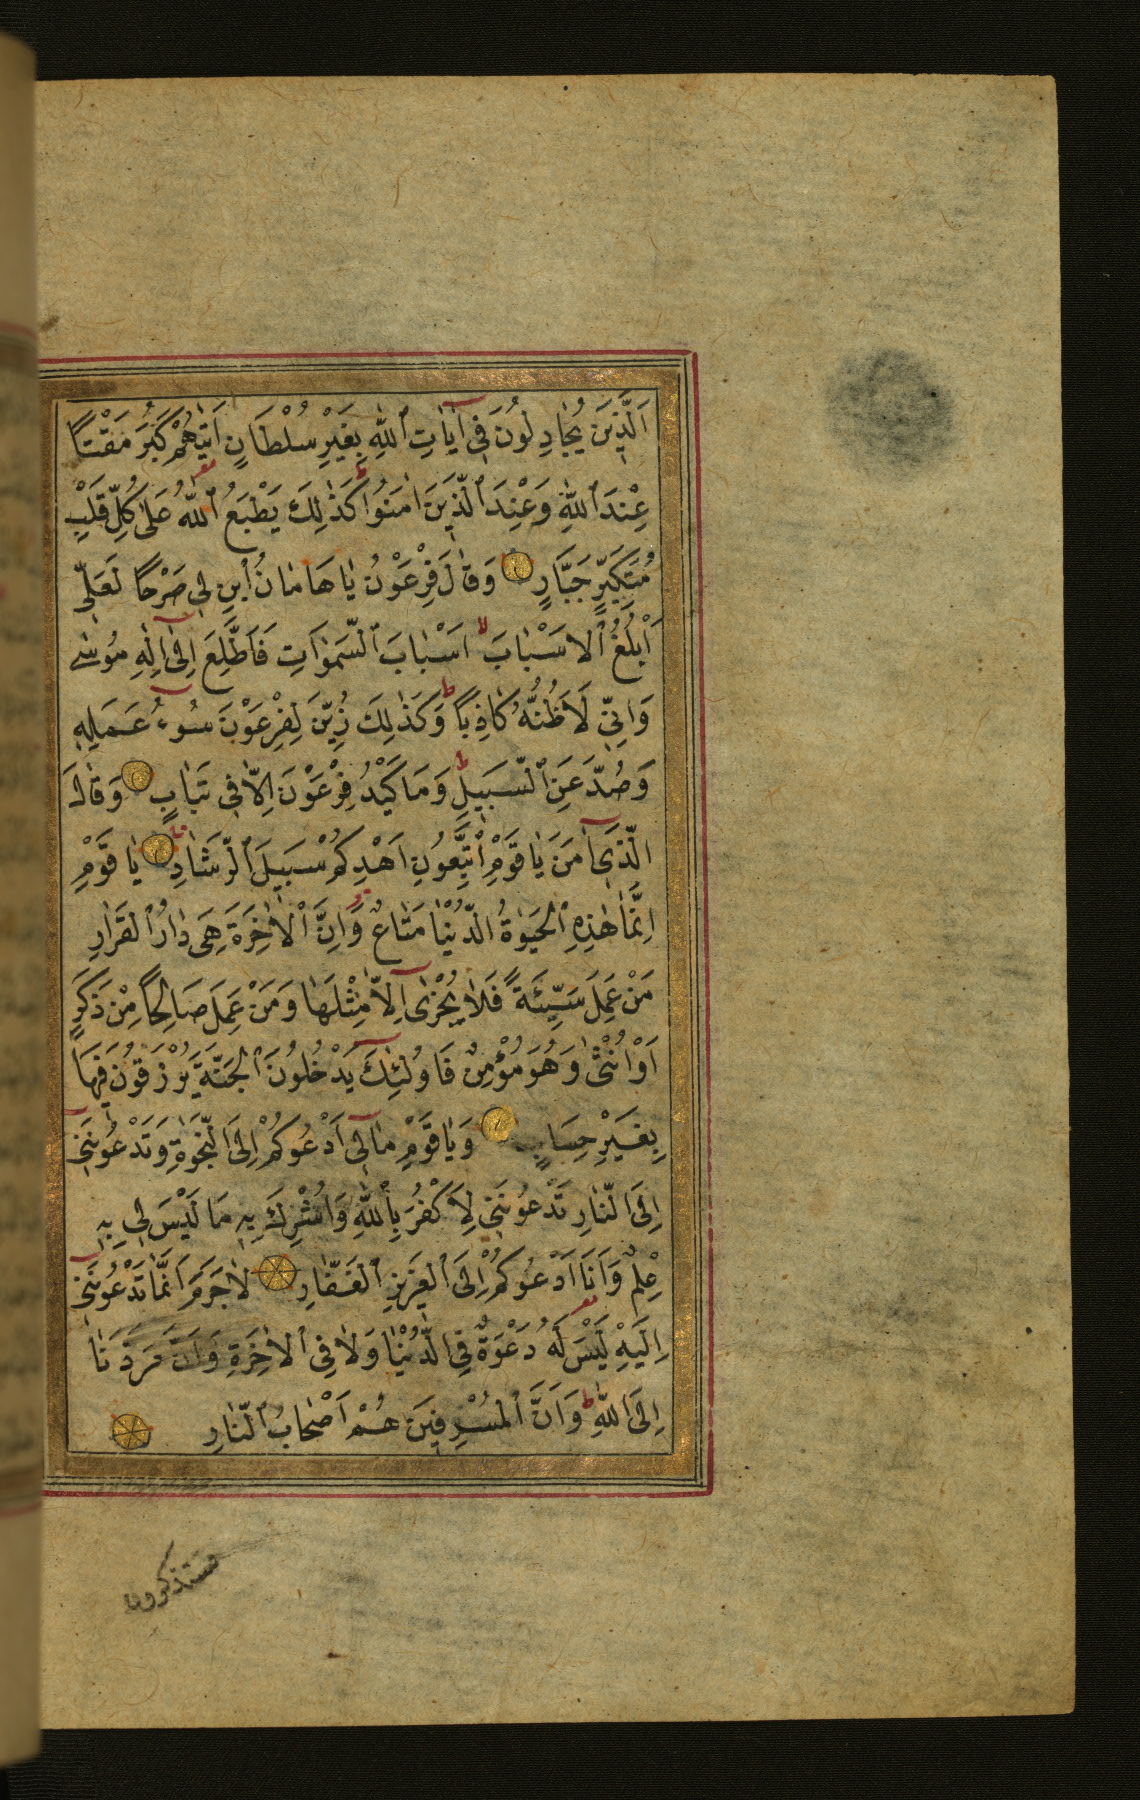 اَلَّذِينَ يُجَادِلُونَ فِي اٰيَاتِ ٱللّٰهِ بِغَيْرِ سُلْطَانٍ اَتٰيهُمْ كَبُرَ مَقْتًا
عِنْدَ ٱللّٰهِ وَعِنْدَ ٱلَّذِينَ اٰمَنُوا كَذٰلِكَ يَطْبَعُ ٱللّٰهُ عَلٰى كُلِّ قَلْبِ
مُتَكَبِّرٍ جَبَّارٍ وَقَالَ فِرْعَوْنُ يَا هَامَانُ ٱبْنِ لِي صَرْحًا لَعَلِّي
اَبْلُغُ ٱلاَسْبَابَ اَسْبَابَ ٱلسَّمٰوَاتِ فَاَطَّلِعَ اِلٰى اِلٰهِ مُوسٰى
وَاِنِّي لَاَظُنُّهُ كَاذِبًا وَكَذٰلِكَ زُيِّنَ لِفِرْعَوْنَ سُوءُ عَمَلِهِ
وَصُدَّ عَنِ ٱلسَّبِيلِ وَمَا كَيْدُ فِرْعَوْنَ اِلَّا فِي تَبَابٍ وَقَالَ
الَّذِي اٰمَنَ يَا قَوْمِ ٱتَّبِعُونِ اَهْدِكُمْ سَبِيلَ ٱلرَّشَادِ يَا قَوْمِ
اِنَّمَا هٰذِهِ ٱلْحَيٰوةُ الدُّنْيَا مَتَاعٌ وَاِنَّ ٱلْاٰخِرَةَ هِيَ دَارُ ٱلْقَرَارِ
مَنْ عَمِلَ سَيِّئَةً فَلَا يُجْزٰى اِلَّا مِثْلَهَا وَمَنْ عَمِلَ صَالِحًا مِنْ ذَكَرٍ
اَوْ اُنْثٰى وَهُوَ مُؤْمِنٌ فَاُولٰئِكَ يَدْخُلُونَ ٱلْجَنَّةَ يُرْزَقُونَ فِيهَا
بِغَيْرِ حِسَابٍ وَيَا قَوْمِ مَا لِي اَدْعُوكُمْ اِلَى ٱلنَّجٰوةِ وَتَدْعُونَنِي
اِلَى ٱلنَّارِ تَدْعُونَنِي لِاَكْفُرَ بِٱللّٰهِ وَاُشْرِكَ بِهِ مَا لَيْسَ لِي بِهِ
عِلْمٌ وَاَنَا اَدْعُوكُمْ اِلَى ٱلْعَزِيزِ ٱلْغَفَّارِ لَا جَرَمَ اَنَّمَا تَدْعُونَنِي
اِلَيْهِ لَيْسَ لَهُ دَعْوَةٌ فِي الدُّنْيَا وَلَا فِي ٱلْاٰخِرَةِ وَاَنَّ مَرَدَّنَا
اِلَى ٱللّٰهِ وَاَنَّ ٱلْمُسْرِفِينَ هُمْ اَصْحَابُ ٱلنَّارِ
فستذكرون